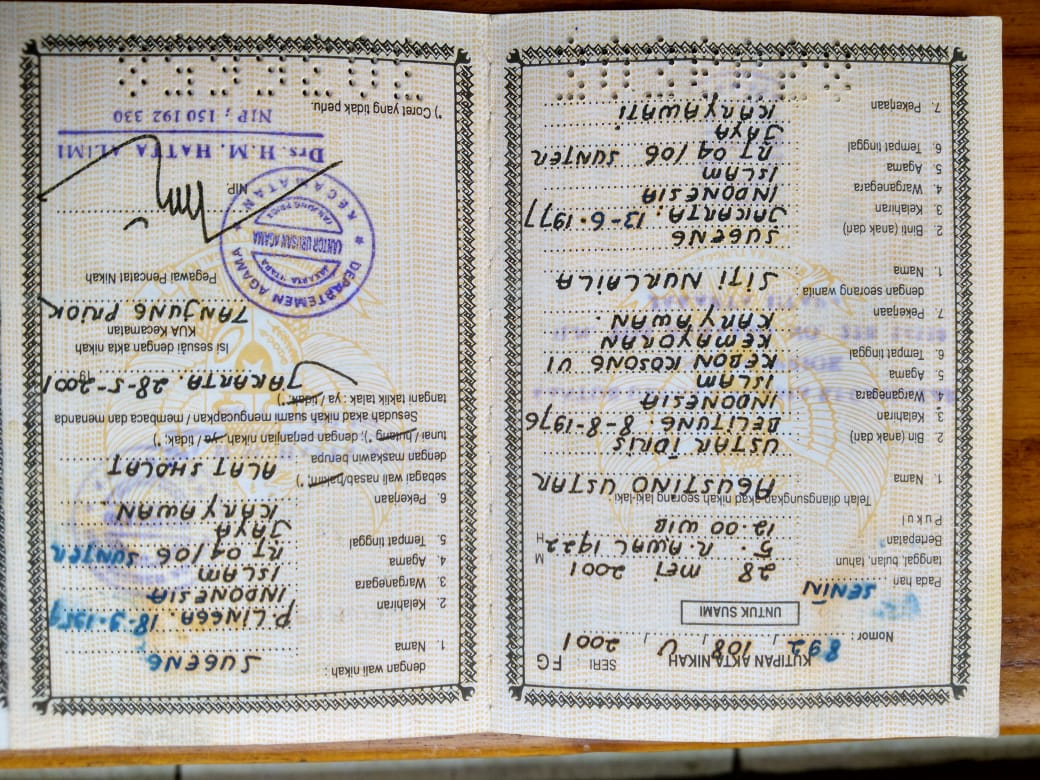 KUTIPAN AKTA NIKAH SERI : FG
Nomor : 892 / 108 / V / 2001
UNTUK SUAMI
Pada hari SENIN
tanggal, bulan, tahun 28 MEI 2001 M
Bertepatan 5. R. AWAL 1422 H
Pukul 12.00 WIB
Telah dilangsungkan akad nikah seorang laki-laki:
1. Nama AGUSTINO USTAR
2. Bin (anak dari) USTAR IDRIS
3. Kelahiran BELITUNG. 8-8-1976
4. Warganegara INDONESIA
5. Agama ISLAM
6. Tempat tinggal KEBON KOSONG VI
KEMAYORAN
7. Pekerjaan KARYAWAN.
dengan seorang wanita :
1. Nama SITI NURLAILA
2. Binti (anak dari) SUGENG
3. Kelahiran JAKARTA. 13-6-1977
4. Warganegara INDONESIA
5. Agama ISLAM
6. Tempat tinggal RT 04/06 SUNTER
JAYA
7. Pekerjaan KARYAWATI
dengan wali nikah :
1. Nama SUGENG
2. Kelahiran P. LINGGA. 18-3-
3. Warganegara INDONESIA
4. Agama ISLAM
5. Tempat tinggal RT 04/06 SUNTER
JAYA
6. Pekerjaan KARYAWAN
sebagai wali nasab/hakim *)
dengan maskawin berupa ALAT SHOLAT
tunai / hutang *); dengan perjanjian nikah, ya / tidak; *)
Sesudah akad nikah suami mengucapkan / membaca dan menanda
tangan taklik talak : ya / tidak; *)
JAKARTA. 28-5-2001
Isi sesuai dengan akta nikah
KUA Kecamatan
TANJUNG PRIOK
Pegawai Pencatat Nikah
DEPARTEMEN AGAMA
KECAMATAN
JAKARTA UTARA
KANTOR URUSAN AGAMA
TANJUNG PRIOK
NIP.
Drs. H.M. HATTA ALIMI
NIP ; 150 192 330
*) Coret yang tidak perlu.